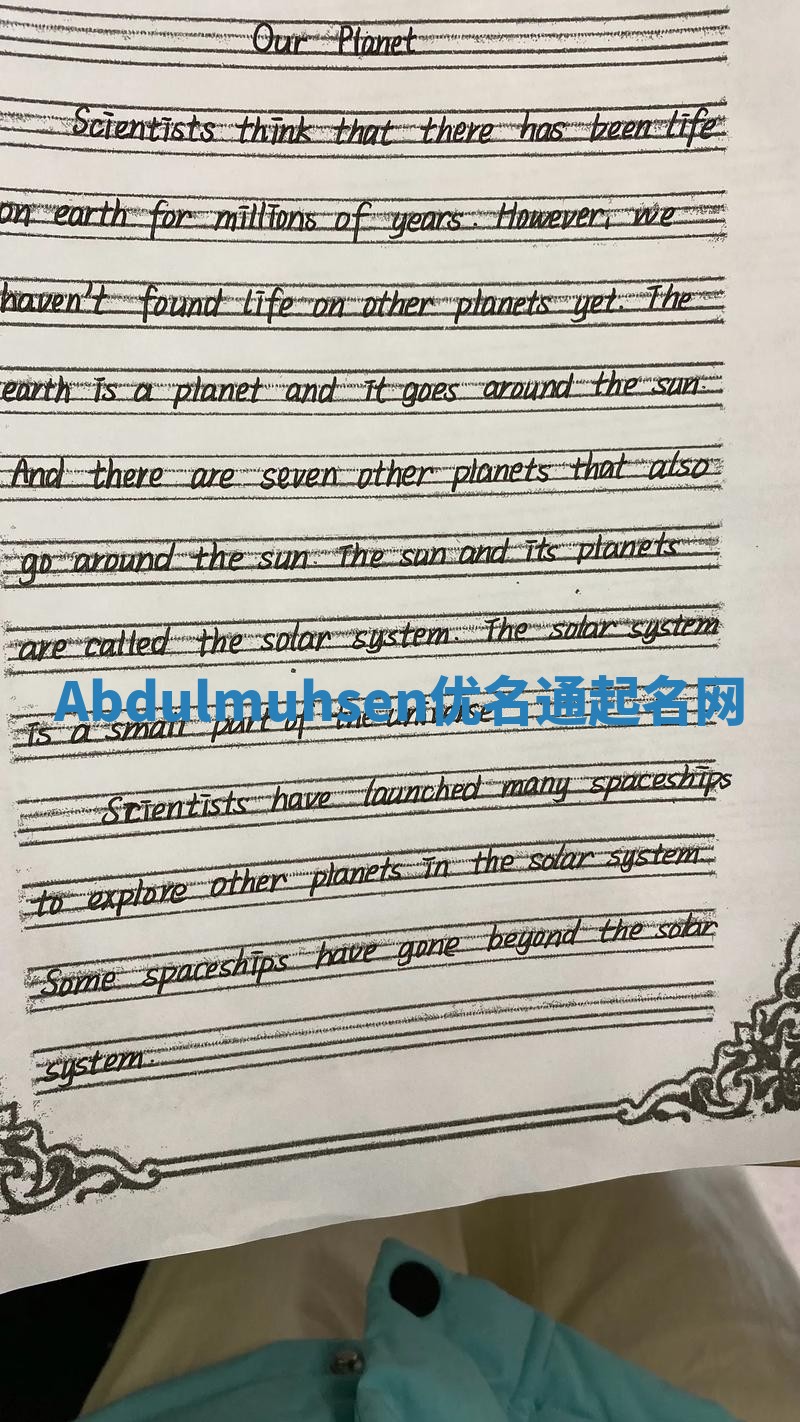 Our Planet
Scientists think that there has been life
on earth for millions of years. However, we
haven't found life on other planets yet. The
earth is a planet and it goes around the sun.
And there are seven other planets that also
go around the sun. The sun and its planets
are called the solar system. The solar system
Abdulmuhsen优名通起名网
is a small part of the universe
Scientists have launched many spaceships
to explore other planets in the solar system.
Some spaceships have gone beyond the solar
system.